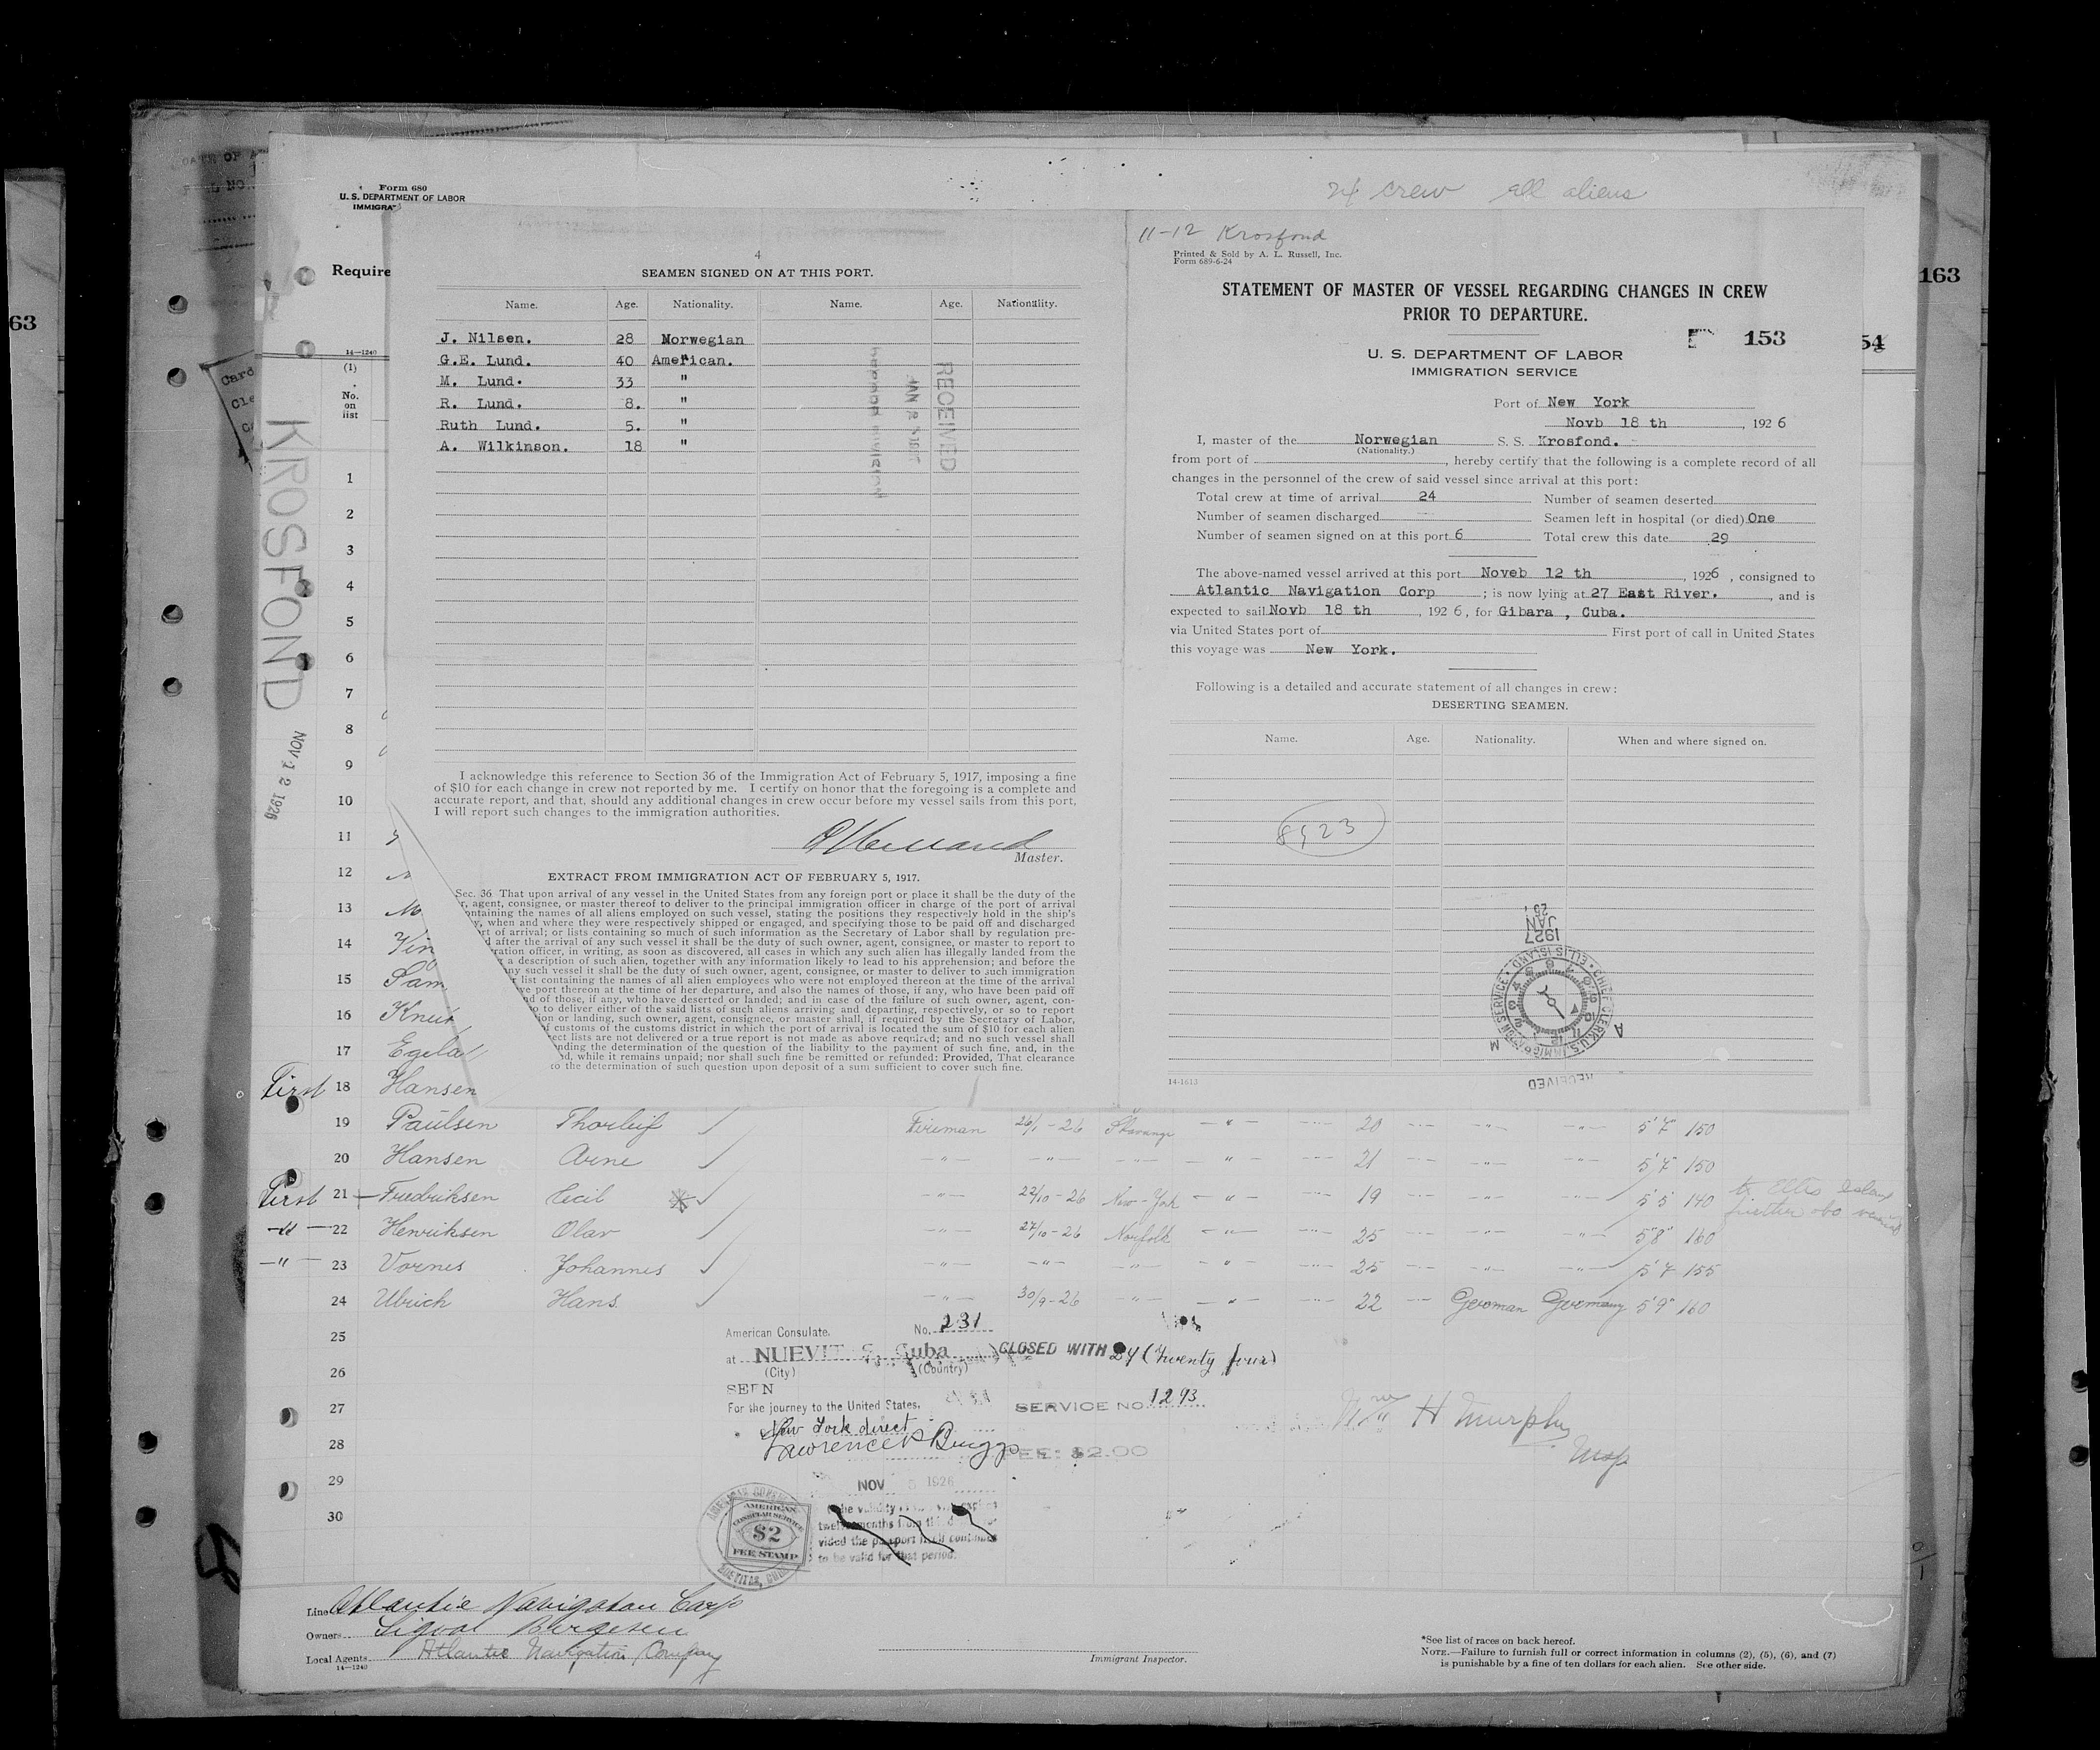 Form 680
U. S. DEPARTMENT OF LABOR
IMMIGRA
24 crew all aliens
Require
14—1240
(1)
No.
on
list
63
163
54
KROSFOND
NOV 12 1926
4
SEAMEN SIGNED ON AT THIS PORT.
Name. Age. Nationality. Name. Age. Nationality.
J. Nilsen. 28 Norwegian
G.E. Lund. 40 American.
M. Lund. 33 "
R. Lund. 8. "
Ruth Lund. 5. "
A. Wilkinson. 18 "
RECEIVED
I acknowledge this reference to Section 36 of the Immigration Act of February 5, 1917, imposing a fine
of $10 for each change in crew not reported by me. I certify on honor that the foregoing is a complete and
accurate report, and that, should any additional changes in crew occur before my vessel sails from this port,
I will report such changes to the immigration authorities.
Master.
EXTRACT FROM IMMIGRATION ACT OF FEBRUARY 5, 1917.
Sec. 36 That upon arrival of any vessel in the United States from any foreign port or place it shall be the duty of the
r, agent, consignee, or master thereof to deliver to the principal immigration officer in charge of the port of arrival
ontaining the names of all aliens employed on such vessel, stating the positions they respectively hold in the ship's
y, when and where they were respectively shipped or engaged, and specifying those to be paid off and discharged
rt of arrival; or lists containing so much of such information as the Secretary of Labor shall by regulation pre-
d after the arrival of any such vessel it shall be the duty of such owner, agent, consignee, or master to report to
ration officer, in writing, as soon as discovered, all cases in which any such alien has illegally landed from the
g a description of such alien, together with any information likely to lead to his apprehension; and before the
ny such vessel it shall be the duty of such owner, agent, consignee, or master to deliver to such immigration
r list containing the names of all alien employees who were not employed thereon at the time of the arrival
ve port thereon at the time of her departure, and also the names of those, if any, who have been paid off
nd of those, if any, who have deserted or landed; and in case of the failure of such owner, agent, con-
o to deliver either of the said lists of such aliens arriving and departing, respectively, or so to report
ion or landing, such owner, agent, consignee, or master shall, if required by the Secretary of Labor,
of customs of the customs district in which the port of arrival is located the sum of $10 for each alien
ect lists are not delivered or a true report is not made as above required; and no such vessel shall
nding the determination of the question of the liability to the payment of such fine, and, in the
d, while it remains unpaid; nor shall such fine be remitted or refunded: Provided, That clearance
o the determination of such question upon deposit of a sum sufficient to cover such fine.
11-12 Krosfond
Printed & Sold by A. L. Russell, Inc.
Form 689-6-24
STATEMENT OF MASTER OF VESSEL REGARDING CHANGES IN CREW
PRIOR TO DEPARTURE.
153
U. S. DEPARTMENT OF LABOR
IMMIGRATION SERVICE
Port of New York
Novb 18 th, 1926
I, master of the Norwegian S. S. Krosfond.
(Nationality.)
from port of , hereby certify that the following is a complete record of all
changes in the personnel of the crew of said vessel since arrival at this port:
Total crew at time of arrival 24 Number of seamen deserted
Number of seamen discharged Seamen left in hospital (or died) One
Number of seamen signed on at this port 6 Total crew this date 29
The above-named vessel arrived at this port Noveb 12 th, 1926, consigned to
Atlantic Navigation Corp ; is now lying at 27 East River. , and is
expected to sail Novb 18 th, 1926, for Gibara , Cuba.
via United States port of First port of call in United States
this voyage was New York.
Following is a detailed and accurate statement of all changes in crew:
DESERTING SEAMEN.
Name. Age. Nationality. When and where signed on.
8923
1927
JAN
CHIEF CLERK U.S. IMMIGRATION SERVICE • ELLIS ISLAND •
RECEIVED
14-1613
1
2
3
4
5
6
7
8
9
10
11
12
13
14 Vin
15 Sam
16
17
First 18 Hansen
19 Paulsen Thorleif Fireman 26/1-26 Stavanger " 20 " " 5'7" 150
20 Hansen Arne " " " " 21 " " 5'7" 150
First 21 Fredriksen Cecil " 22/10-26 New-York " 19 " " 5'5 140 to Ellis Island
" 22 Henriksen Olav " 27/10-26 Norfolk " 25 " " 5'8" 160
" 23 Vornes Johannes " " " " 25 " " 5'7 155
24 Ulrich Hans. " 30/9-26 " " 22 German Germany 5'9" 160
25
26
27
28
29
30
American Consulate. No. 231
at NUEVITAS, Cuba CLOSED WITH 24 (Twenty four)
(City) (Country)
SEEN
For the journey to the United States. SERVICE NO. 1293
New York direct
Lawrence Briggs FEE: $2.00
NOV 5 1926
AMERICAN
CONSULAR SERVICE
$2
FEE STAMP
twelve months from
vided the passport itself continues
to be valid for that period.
Wm H Murphy
Line Atlantic Navigation Corp
Owners Sigval Bergesen
Local Agents Atlantic Navigation Company
14—1240
Immigrant Inspector.
*See list of races on back hereof.
NOTE.—Failure to furnish full or correct information in columns (2), (5), (6), and (7)
is punishable by a fine of ten dollars for each alien. See other side.